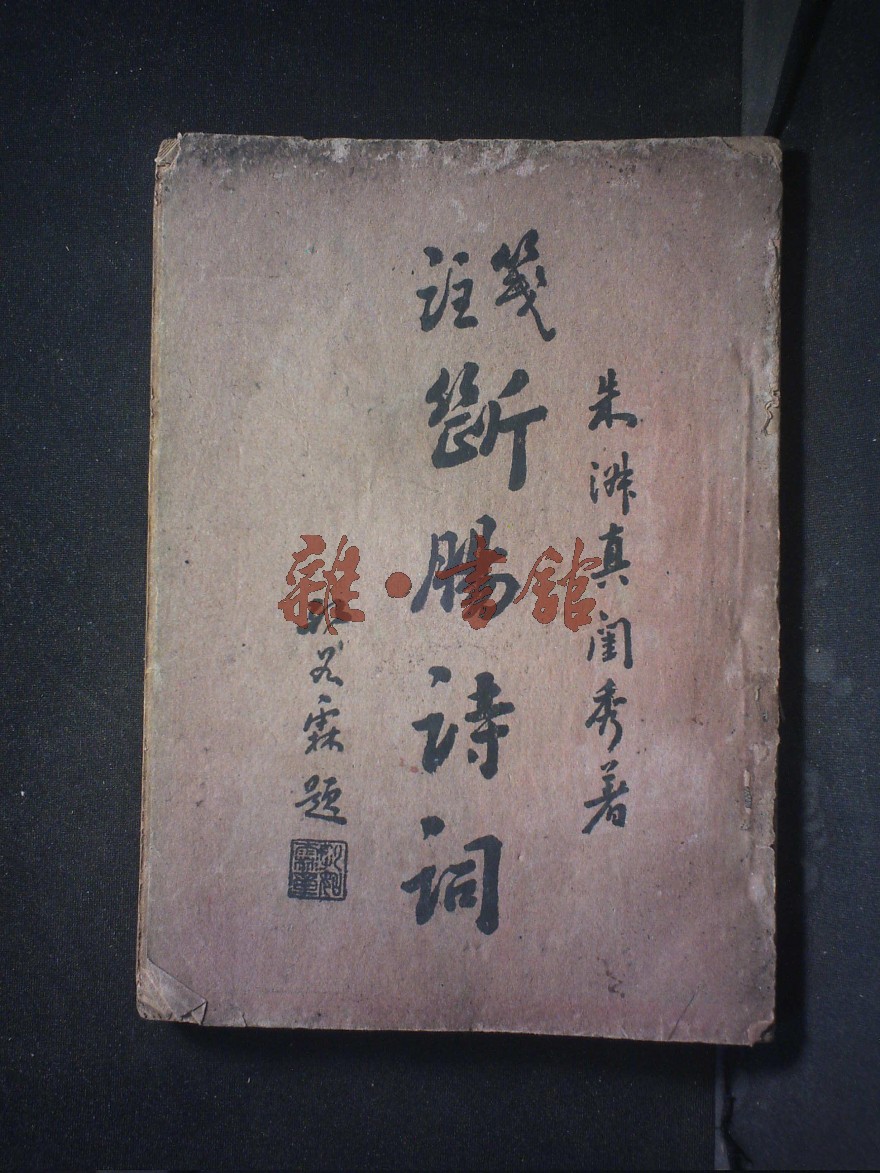 朱淑真閨秀著
箋註斷腸詩詞
霖題
雜·書館